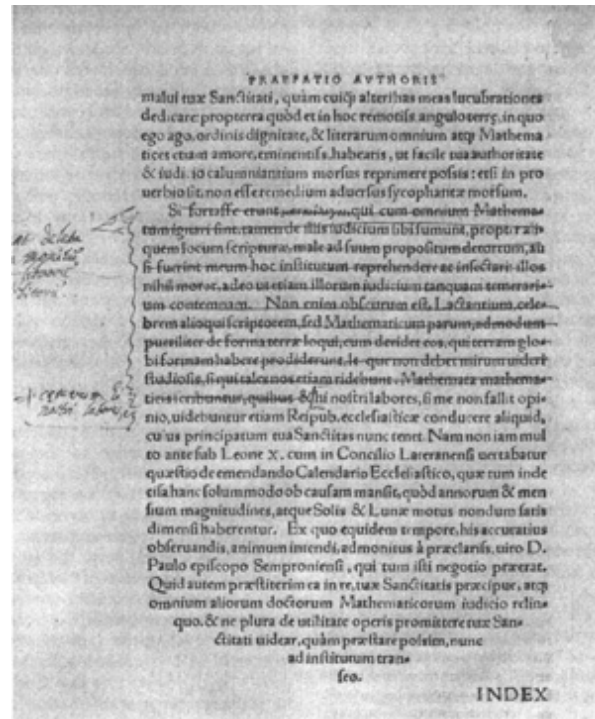 PRAEFATIO AVTHORIS
malui tuæ Sanctitati, quàm cuiqȝ alteri has meas lucubrationes
dedicare propterea quòd et in hoc remotiss. angulo terræ, in quo
ego ago, ordinis dignitate, & literarum omnium atqȝ Mathema
tices etiam amore, eminentiss. habearis, ut facile tua authoritate
& iudicio calumniantium morsus reprimere possis: etsi in pro
uerbio sit, non esse remedium aduersus sycophantæ morsum.
Si fortasse erunt qui cum omnium Mathema
tum ignari sint, tamen de illis iudicium sibi sumunt, propter ali
quem locum scripturæ, male ad suum propositum detortum, au
si fuerint meum hoc institutum reprehendere ac insectari: illos
nihil moror, adeo ut etiam illorum iudicium tanquam temerari
um contemnam. Non enim obscurum est, Lactantium, cele
brem alioqui scriptorem, sed Mathematicum parum, admodum
pueriliter de forma terræ loqui, cum deridet eos, qui terram glo
bi formam habere prodiderunt. que non debet mirum uideri
studiosis, si qui tales nos etiam ridebunt. Mathemata mathema
ticis scribuntur, quibus & hi nostri labores, si me non fallit opi
nio, uidebuntur etiam Reipub. ecclesiasticæ conducere aliquid,
cuius principatum tua Sanctitas nunc tenet. Nam non iam mul
to ante sub Leone X. cum in Concilio Lateranensi uertabatur
quæstio de emendando Calendario Ecclesiastico, quæ tum inde
cisa hanc solummodo ob causam mansit, quòd annorum & men
sium magnitudines, atque Solis & Lunæ motus nondum satis
dimensi haberentur. Ex quo equidem tempore, his accuratius
obseruandis, animum intendi, admonitus à præclariss. uiro D.
Paulo episcopo Semproniensi, qui tum isti negotio præerat.
Quid autem præstiterim ea in re, tuæ Sanctitatis præcipue, atqȝ
omnium aliorum doctorum Mathematicorum iudicio relin-
quo, & ne plura de utilitate operis promittere tuæ San-
ctitati uidear, quàm præstare possim, nunc
ad institutum tran-
seo.
INDEX